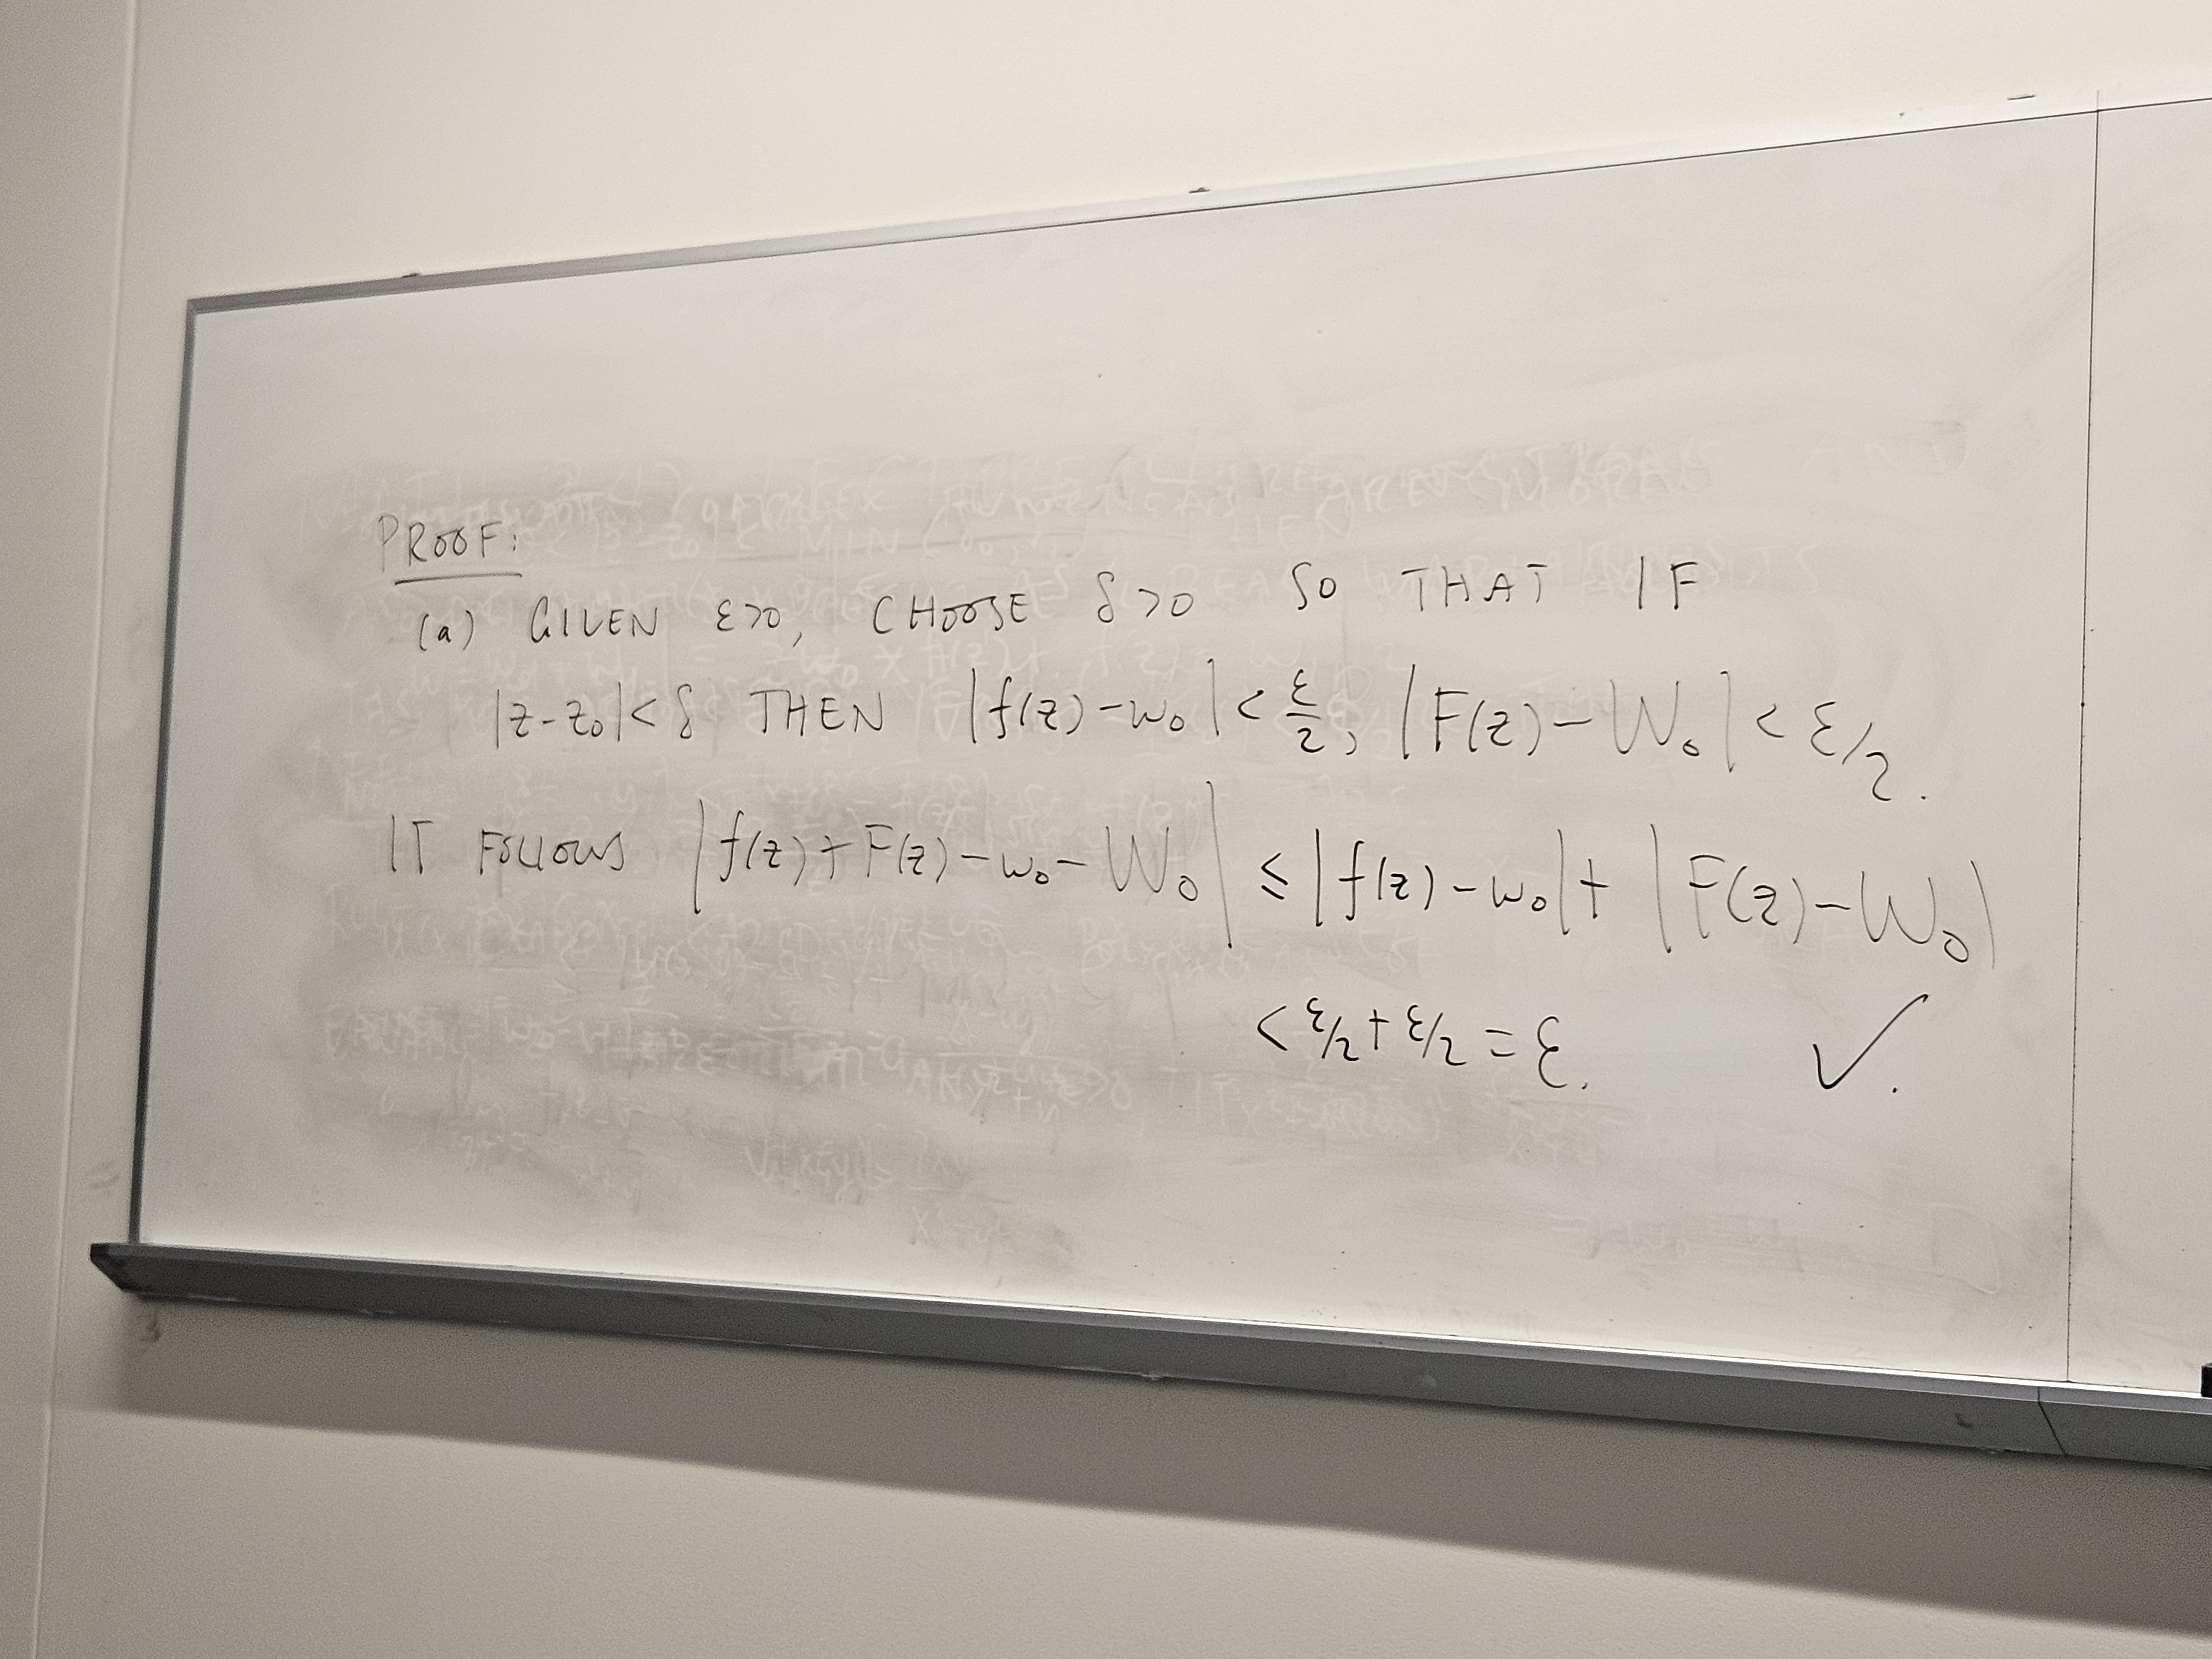 PROOF:
(a) GIVEN ε>0, CHOOSE δ>0 SO THAT IF
|z-z₀|<δ THEN |f(z)-w₀|<ε/2, |F(z)-W₀|<ε/2.
IT FOLLOWS |f(z)+F(z)-w₀-W₀| ≤ |f(z)-w₀|+|F(z)-W₀|
<ε/2+ε/2=ε. ✓.